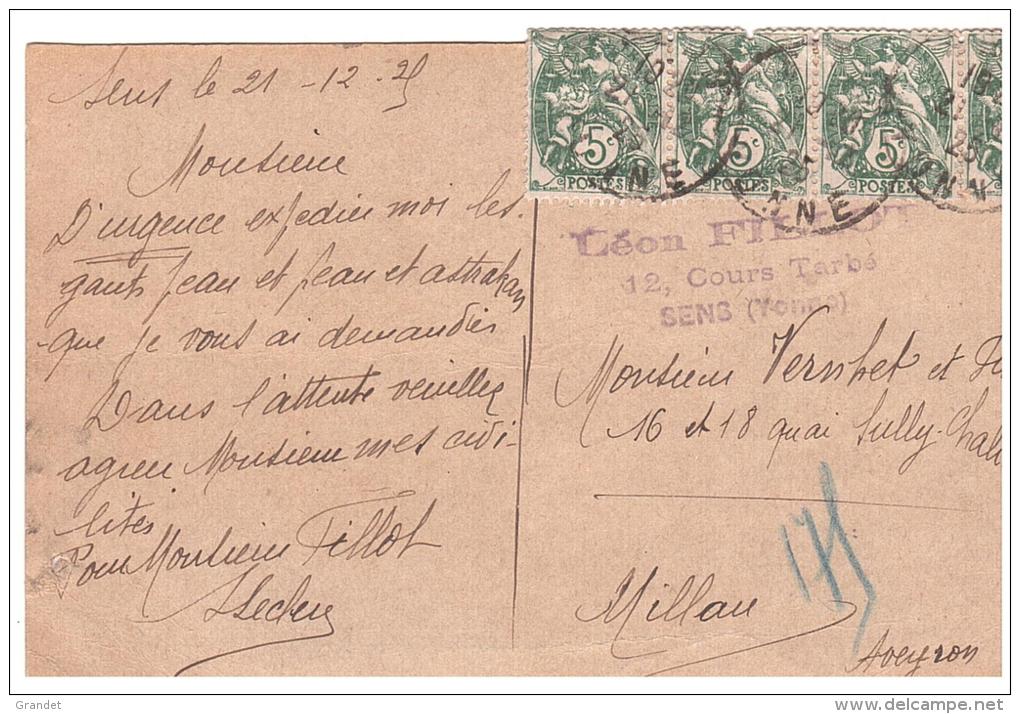 Sens le 21-12-25
Monsieur
D'urgence expedier moi les
gants peau et peau et astrakan
que je vous ai demandés
Dans l'attente veuillez
agréer Monsieur mes civi-
lités
Pour Monsieur Fillot
5c 5c 5c
POSTES POSTES POSTES
NE NNE NN
Léon FILLOT
12, Cours Tarbé
SENS (Yonne)
Monsieur Vernhet et
16 et 18 quai Sully-Chal
Millau
Aveyron
175
Grandet
www.delcampe.net